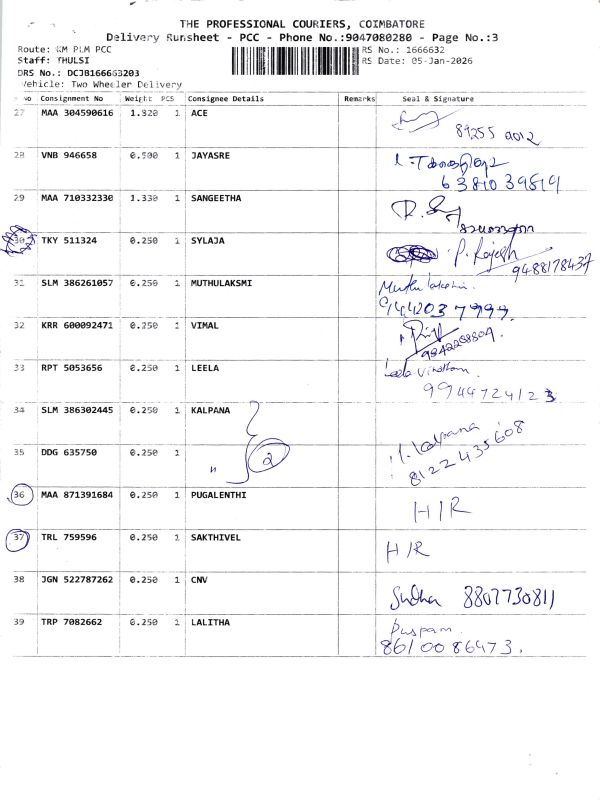 THE PROFESSIONAL COURIERS, COIMBATORE
Delivery Runsheet - PCC - Phone No.:9047080280 - Page No.:3
Route: KM PLM PCC
RS No.: 1666632
Staff: THULSI
RS Date: 05-Jan-2026
DRS No.: DCJB166663203
Vehicle: Two Wheeler Delivery
No Consignment No Weight PCS Consignee Details Remarks Seal & Signature
27 MAA 304590616 1.320 1 ACE
89255 9012
28 VNB 946658 0.500 1 JAYASRE
6381039519
29 MAA 710332330 1.330 1 SANGEETHA
30 TKY 511324 0.250 1 SYLAJA P. Rajesh
9488178437
31 SLM 386261057 0.250 1 MUTHULAKSMI Muthulakshmi
9442037999
32 KRR 600092471 0.250 1 VIMAL
9842208804
33 RPT 5053656 0.250 1 LEELA Leela Vinotham
9944724123
34 SLM 386302445 0.250 1 KALPANA Kalpana
8122435608
35 DDG 635750 0.250 1 " 2
36 MAA 871391684 0.250 1 PUGALENTHI H/R
37 TRL 759596 0.250 1 SAKTHIVEL H/R
38 JGN 522787262 0.250 1 CNV Sudha 8807730811
39 TRP 7082662 0.250 1 LALITHA Puspam
8610086473.